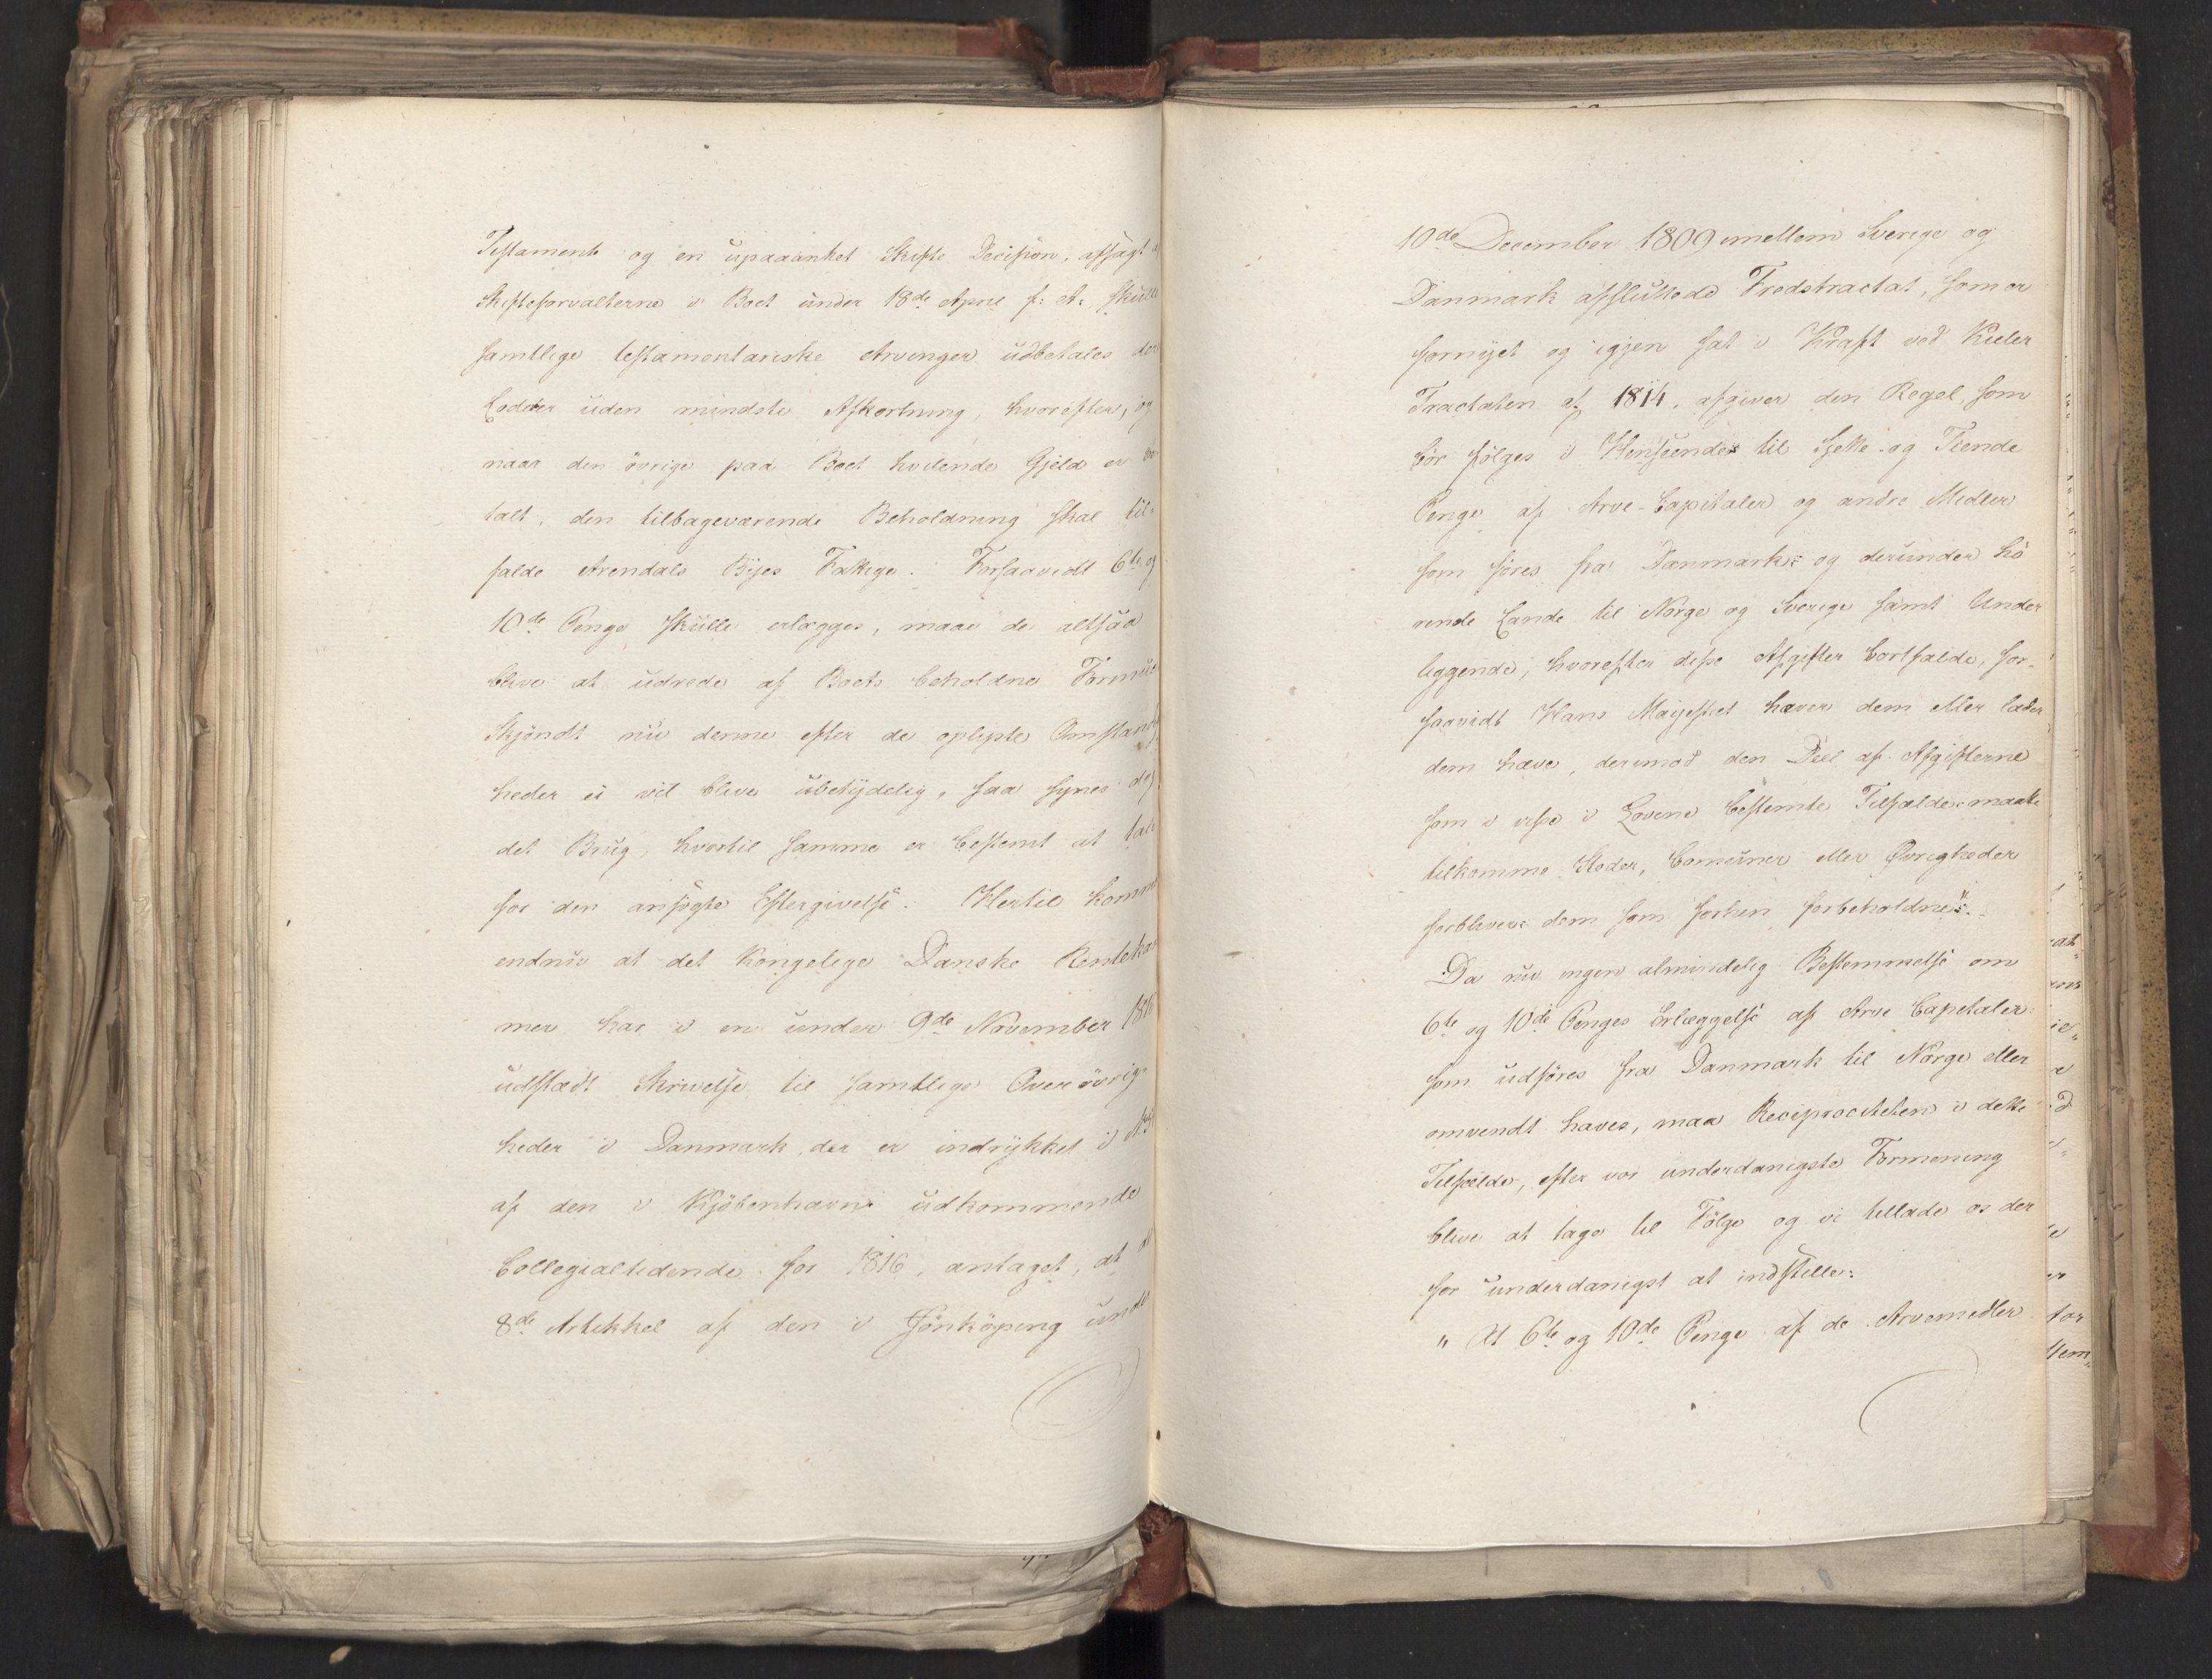 Testament og en upaaanket Skifte Decision, afsagt a
Skifteforvalterne i Boet under 18de April f: A: skulle
samtlige testamentariske Arvinger udbetales der
Lodder uden mindste Afkortning, hvorefter, og
naar den övrige paa Boet hvilende Gjeld er be
talt, den tilbageværende Beholdning skal til-
falde Arendals Byes Fattige. Forsaavidt 6te og
10de Penge skulle erlægges, maae de altsaa
blive at udrede af Boets beholdne Formue
Skjöndt nu denne efter de oplyste Omstænd
heder ei vil blive ubetydelig, saa synes dog
det Brug, hvortil samme er bestemt at tale
for den ansögte Eftergivelse. Hertil komm
endnu at det Kongelige Danske Renteka
mer har i en under 9de November 1816
udstædt Skrivelse til samtlige Overövrig
heder i Danmark, der er indrykket i No
af den i Kjöbenhavn udkommende
Collegialtidende for 1816, antaget, at
8de Artikkel af den i Jönköping unde
10de December 1809 imellem Sverige og
Danmark afsluttede Fredstractat, som er
fornyet og igjen sat i Kraft ved Kieler
Tractaten af 1814, afgiver den Regel, som
bör fölges i Henseende til Sjette- og Tiende
Penge af Arve-Capitaler og andre Midler
som föres fra Danmark og derunder hö
rende Lande til Norge og Sverige samt Under
liggende, hvorefter disse Afgifter bortfalde, for-
saavidt Hans Majestæt hæver dem eller lader
dem hæve, derimod den Deel af Afgifterne
som i visse i Lovene bestemte Tilfælde maatte
tilkomme Stæder, Comuner eller Övrigheder
forbliver dem som forhen forbeholdne".
Da nu ingen almindelig Bestemmelse om
6te og 10de Penges Erlæggelse af Arve Capitaler
som udföres fra Danmark til Norge eller
omvendt haves, maa Reciprociteten i dette
Tilfælde, efter vor underdanigste Formening
blive at tage til Fölge og vi tillade os der
for underdanigst at indstille:
" At 6te og 10de Penge af de Arvemidler